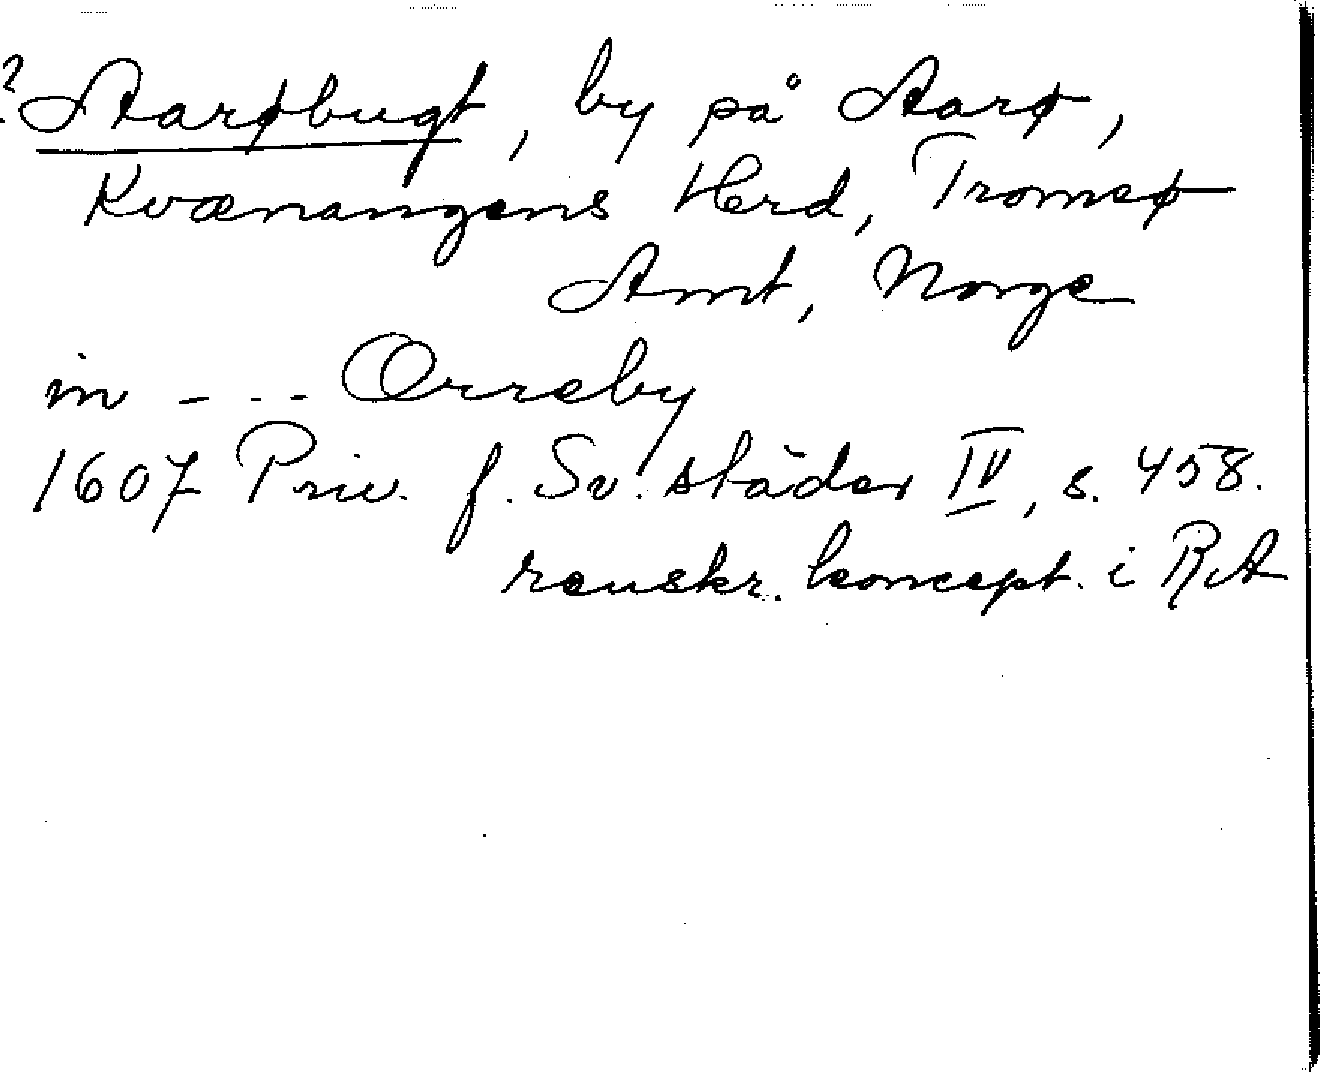 ? Aarøbugt, by på Aarø,
Kvænangens Herd, Tromsø
Amt, Norge
in - - - Orreby
1607 Priv. f. Sv. städer IV, s. 458.
renskr. koncept. i RA